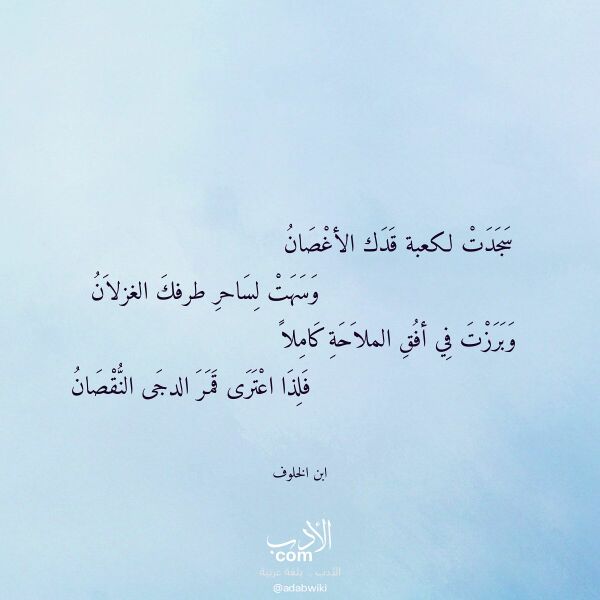 سَجَدَتْ لكعبة قَدَك الأغْصَانُ
وَسَهَتْ لِسَاحرِ طرفكَ الغزلاَنُ
وَبَرَزْتَ فِي أفُقِ الملاَحَةِ كَامِلاً
فَلِذَا اعْتَرَى قَمَرَ الدجَى النُّقْصَانُ
ابن الخلوف
الأدب
com
الأدب .. بلغة عربية
@adabwiki